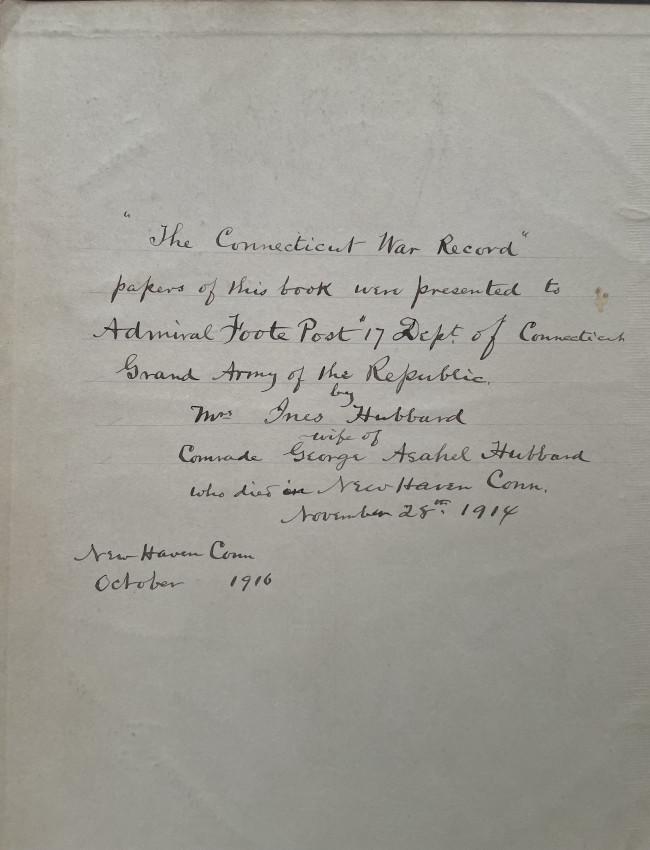 "The Connecticut War Record"
papers of this book were presented to
Admiral Foote Post #17 Dept. of Connecticut
Grand Army of the Republic.
by
Mrs Ines Hubbard
wife of
Comrade George Asahel Hubbard
who died in New Haven Conn.
November 28th. 1914
New Haven Conn
October 1916